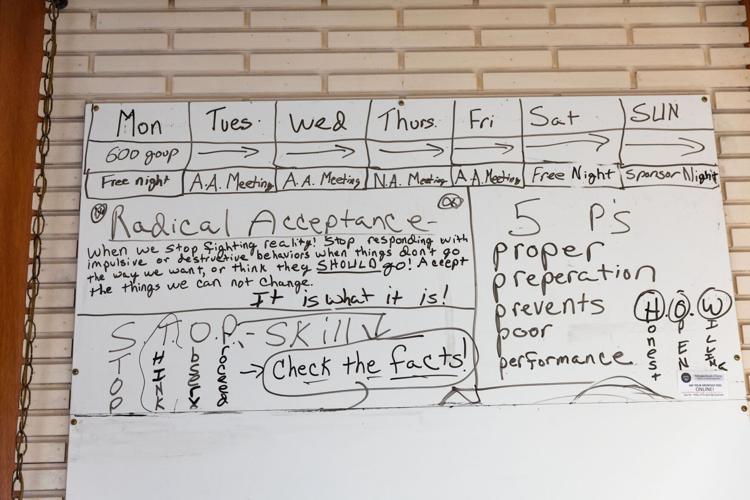 Mon Tues. Wed Thurs. Fri Sat SUN
600 goup
Free night A.A. Meeting A.A. Meeting N.A. Meeting A.A. Meeting Free Night Sponsor Night
Radical Acceptance-
When we stop fighting reality! Stop responding with
impulsive or destructive behaviors when things don't go
the way we want, or think they SHOULD go! Accept
the things we can not change.
It is what it is!
S.T.O.P.-Skill
STOP
THINK
Observe
Process
Check the facts!
5 P's
proper
preperation
prevents
poor
performance
H.O.W
Honest
OPEN
ONLINE!